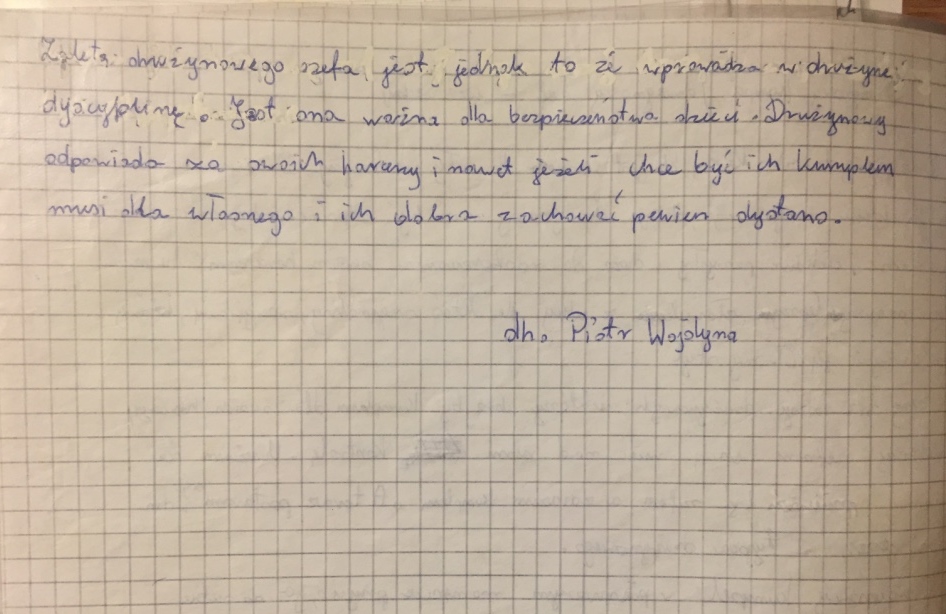 Zaletą drużynowego szefa jest jednak to że wprowadza w drużynę
dyscyplinę. Jest ona ważna dla bezpieczeństwa dzieci. Drużynowy
odpowiada za swoich harcerzy i nawet jeżeli chce być ich kumplem
musi dla własnego i ich dobra zachować pewien dystans.
dh. Piotr